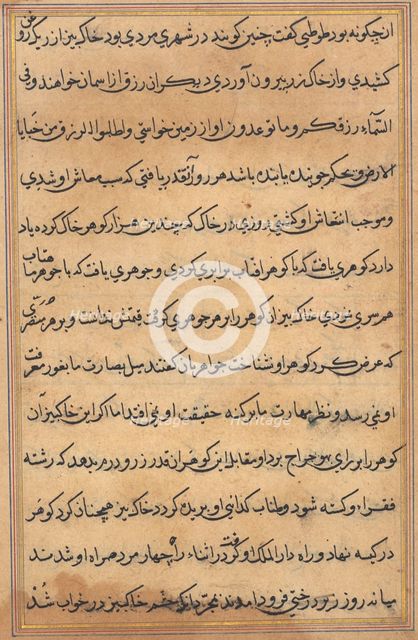 ان چگونه بود طوطی گفت چنین گویند در شهری مردی بود خاک بیز از ریگ زر
کشیدی و از خاک زر بیرون آوردی دیگران رزق از اسمان خواهند و فی
السَّمآء رزقکم وما توعدون او از زمین خواستی و اطلبوا الرزق من خبایا
الارض و بحکم جوینده یابنده باشد هر روز آنقدر یافتی که سبب معاش او شدی
و موجب انتعاش او گشتی روزی در خاک که چندین هزار گوهر خاک کرده یاد
دارد گوهری یافت که با گوهر افتاب برابری کردی و جوهری یافت که با جوهر ماهتاب
همسری نمودی خاک بیز ان گوهر را بر هر جوهری که برد قیمتش نشناخت و بر هر مبصری
که عرض کرد گوهر او نشناخت جواهریان گفتند سیل بصارت ما بغور معرفت
او نمی رسد و نظر مهارت ما بر کنه حقیقت او نمی افتد اما اگر این خاک بیز آن
گوهر را بر رای برد او مقابل این گوهر ان قدر زر و درم بدهد که رشته
فقر او گسسته شود و طناب گدائی او بریده گردد خاک بیز همچنان کرد گوهر
در کیسه نهاد و راه دار الملک او گرفت در اثناء راه چهار مرد همراه او شدند
میانه روز زیر درختی فرود آمدند خاک بیز در خواب شُد
Heritage
Heritage
Heritage